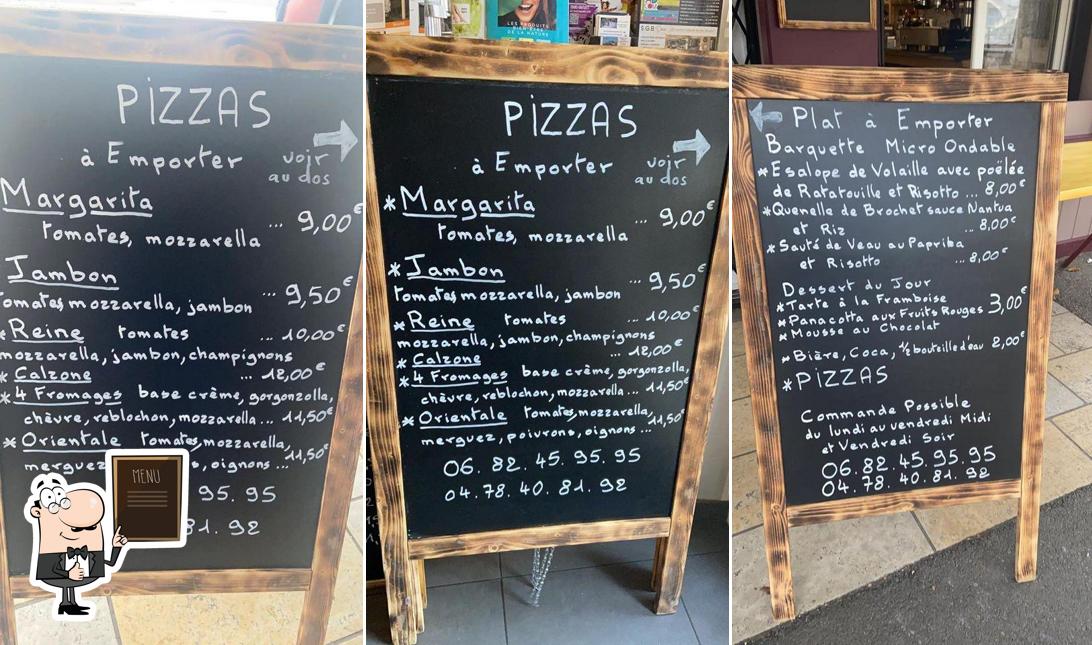 PiZZAS
à Emporter
voir
au dos
Margarita
... 9,00€
tomates, mozzarella
Jambon
... 9,50€
tomates mozzarella, jambon
*Reine tomates ... 10,00€
mozzarella, jambon, champignons
* Calzone ... 12,00€
*4 Fromages base crème, gorgonzolla,
chèvre, reblochon, mozzarella ... 11,50€
* Orientale tomates, mozzarella,
oignons ... 11,50€
95. 95
81. 92
MENU
LES PRODUITS
BIEN-ÊTRE
DE LA NATURE
SGB
PiZZAS
à Emporter
voir
au dos
*Margarita
... 9,00€
tomates, mozzarella
*Jambon
... 9,50€
tomates mozzarella, jambon
*Reine tomates ... 10,00€
mozzarella, jambon, champignons
* Calzone ... 12,00€
*4 Fromages base crème, gorgonzolla,
chèvre, reblochon, mozzarella ... 11,50€
*Orientale tomates, mozzarella,
merguez, poivrons, oignons ... 11,50€
06. 82. 45. 95. 95
04. 78. 40. 81. 92
Plat à Emporter
Barquette Micro Ondable
*Esalope de Volaille avec poëlée
de Ratatouille et Risotto ... 8,00€
*Quenelle de Brochet sauce Nantua
et Riz ... 8,00€
*Sauté de Veau au Papriba
et Risotto ... 8,00€
Dessert du Jour
*Tarte à la Framboise
*Panacotta aux Fruits Rouges 3,00€
*Mousse au Chocolat
*Bière, Coca, ½ bouteille d'eau 2,00€
*PiZZAS
Commande Possible
du lundi au vendredi Midi
et Vendredi Soir
06.82.45.95.95
04.78.40.81.92